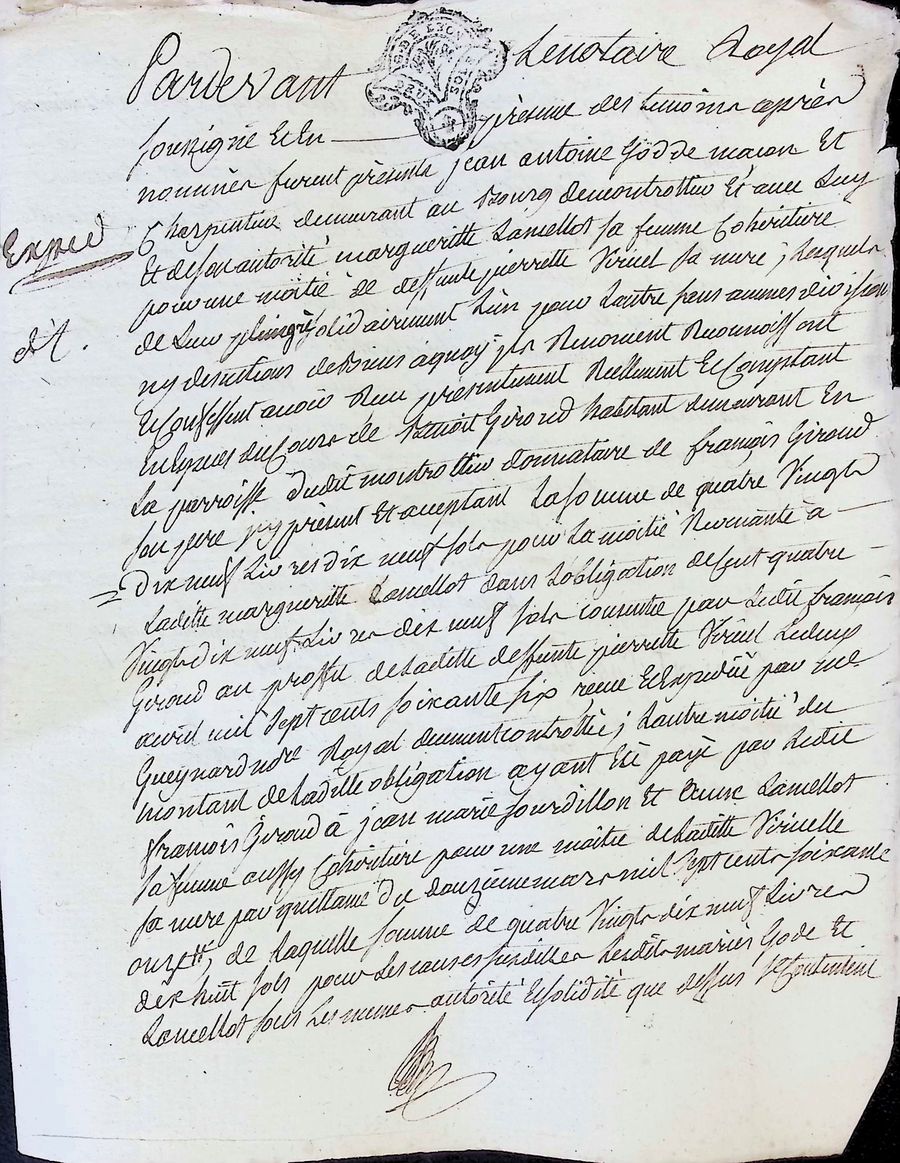 Pardevant Lenotaire Royal
soussigné Et En présence des temoins après
nommés furent présents jean antoine Gödde macon Et
Charpentier demeurant au Bourg demontrottier Et avec Luy
Et deson autorité margueritte Lancellot sa femme Cohéritiere
pour une moitié de deffunte pierrette Viricel sa mere ; Lesquels
de Leur plein gré solidairement L'un pour Lautre sans aucunes division
ny discutions de Biens aquoy ils Renoncent Reconnoissent
Et Confessent avoir Receu présentement Réellement Et Comptant
En Espèces du Cours de Benoit Giroud habitant demeurant En
La parroisse dudit montrottier donnataire de françois Giroud
son pere icy présent Et acceptant La somme de quatre Vingts
= Dix neuf Livres dix neuf sols pour La moitié Revenante à
Laditte margueritte Lancellot dans L'obligation de Cent quatre
Vingts dix neuf Livres dix neuf sols consentie par Ledit françois
Giroud au proffit deLaditte deffunte pierrette Viricel Le
avril mil Sept cents soixante six reçue Et Expediée par me
Gueynard nore Royal duement controllée ; Lautre moitié du
montant de Laditte obligation ayant Eté payé par Ledit
françois Giroud à jean marie Jourdillon Et Lancellot
sa femme aussy Cohéritiere pour une moitié deLaditte Viricelle
sa mere par quittance du douzième mars mil Sept cents soixante
onze, de Laquelle somme de quatre Vingts dix neuf Livres
dix huit sols pour Les causes susdittes Lesdits mariés Gode Et
Lancellot sous Les mêmes autorité Et solidité que dessus se Contentent
Exped
d t.